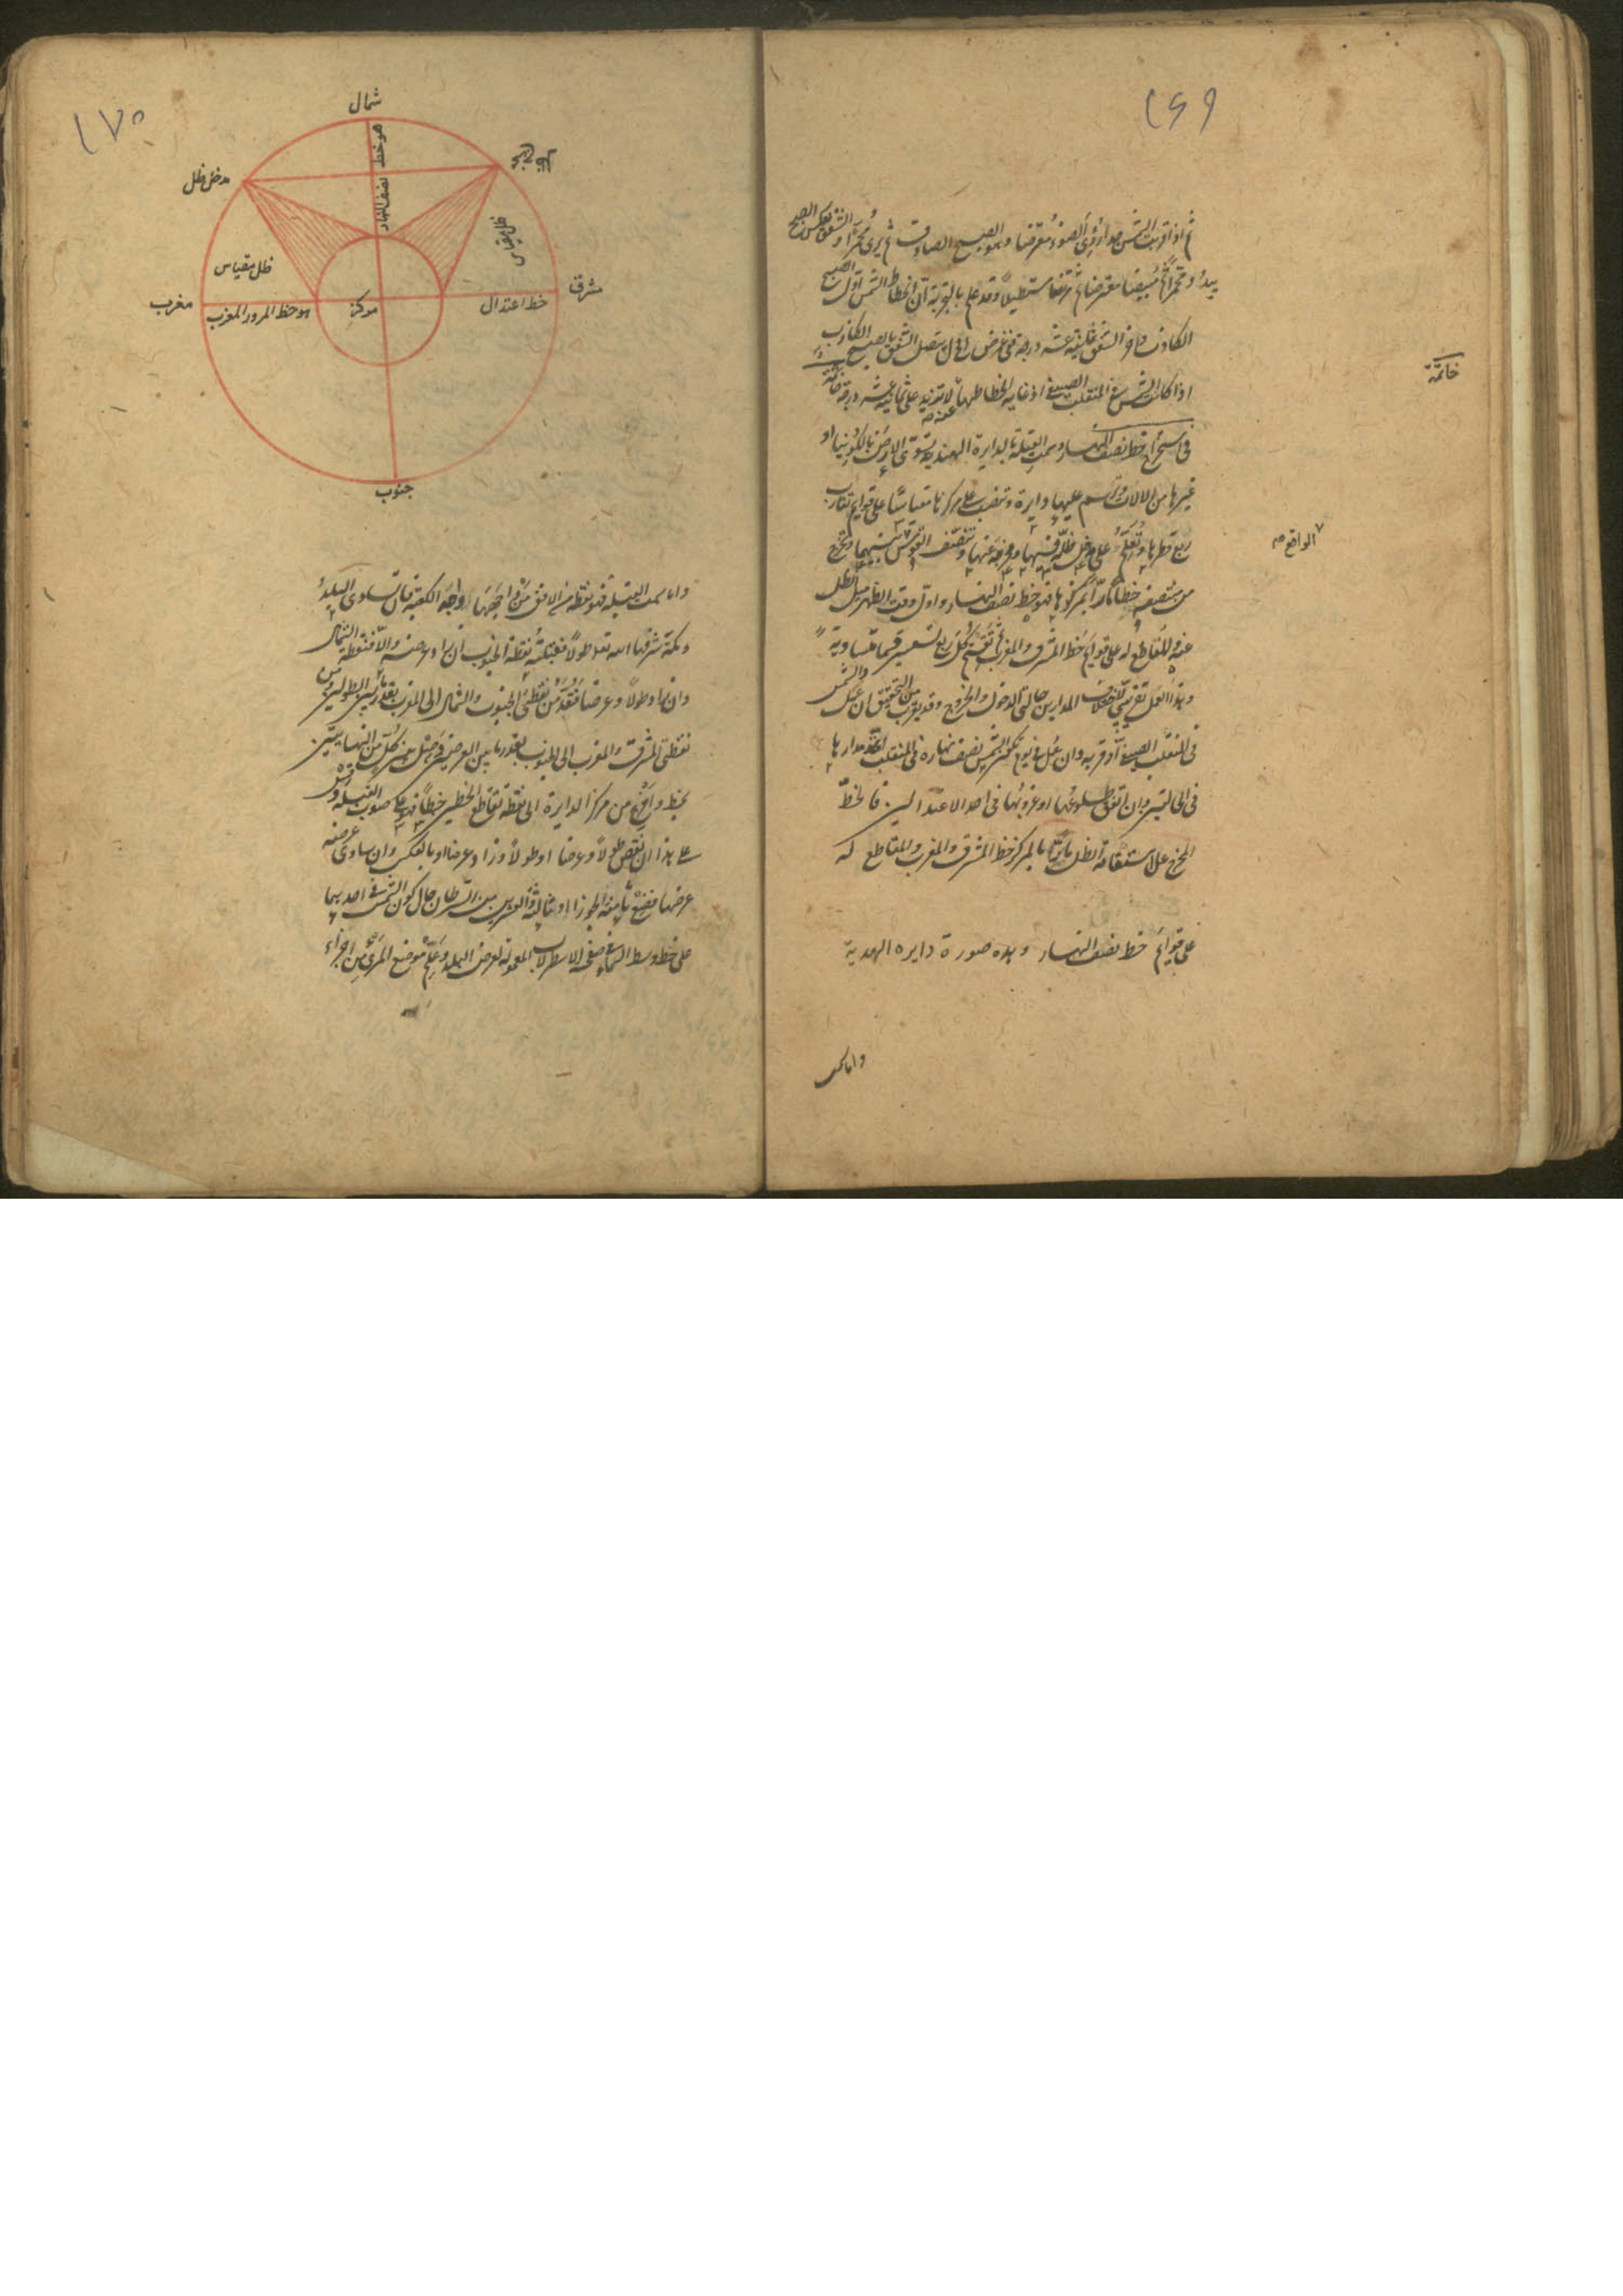 ١٦٩
ثم اذا قربت الشمس جدا رؤى الضوء معترضا وهو الصبح الصادق ثم يرى محمرا والشفق بعكس الصبح
يبدؤ محمرا ثم مبيضا معترضا ثم مرتفعا مستطيلا وقد علم بالتجربة ان انحطاط الشمس اول الصبح
الكاذب واخر الشفق ثمانية عشر درجة ففى عرض يتصل الشفق بالصبح الكاذب
اذا كانت الشمس فى المنقلب الصيفى اذ غاية انحطاطها عنده لا تزيد على ثمانية عشر درجة خاتمة
خاتمة
فى استخراج خط نصف النهار وسمت القبلة بالدايرة الهندية تسوى الارض بالكونيا او
غيرها من الالات وترسم عليها دايرة وتنصب على مركزها مقياسا على قوايم تقارب
ربع قطرها وتعلم على مدخل ظله فيها ومخرجه عنها وتنصف القوس بينهما وتخرج
الواقع
من منتصفه خطا مارا بمركزها فهو خط نصف النهار واول وقت الظهر ميل الظل
عنه والمقاطع له على قوايم خط المشرق والمغرب ثم تقسم كل ربع تسعين قسما متساوية
وهذا العمل تقريبى لاختلاف المدارين حالتى الدخول والخروج وقد يقرب من التحقيق ان عمل والشمس
فى المنقلب الصيفى او قربه وان عمل فى يوم تكون الشمس نصف نهاره فى المنقلب اتحد مدارها
فى الحالتين وان اتفق طلوعها او غروبها فى احد الاعتدالين فالخط
المخرج على استقامة الظل مارا بالمركز خط المشرق والمغرب والمقاطع له
على قوايم خط نصف النهار وهذه صورة دايره الهندية
واما سمت
١٧٠
شمال
هو خط نصف النهار
مدخل ظل
ظل مقياس
ظل مقياس
مشرق
خط اعتدال
مركز
هو خط المرور المغرب
مغرب
جنوب
واما سمت القبلة فهو نقطة من الافق من واجهها واجه الكعبة فان تساوى البلد
ومكة شرفها الله تعالى طولا فقبلته نقطة الجنوب ان زاد عرضه والا فنقطة الشمال
وان زاد طولا وعرضا فعد من نقطتى الجنوب والشمال الى المغرب بقدر ما بين الطولين ومن
نقطتى المشرق والمغرب الى الجنوب بقدر ما بين العرضين وصل بين كل من النهايتين
بخط واخرج من مركز الدايرة الى نقطة تقاطع الخطين خطا فهو على صوب القبلة وقس
على هذا ان نقص طولا وعرضا او طولا وزاد عرضا او بالعكس وان ساوى عرضه
عرضها فضع ثامنة الجوزا او ثالثة والعشرين من السرطان حال كون الشمس فى احديهما
على خط وسط السماء فى صفحة الاسطرلاب المعمولة لعرض البلد وعلم موضع المرى من اجزاء